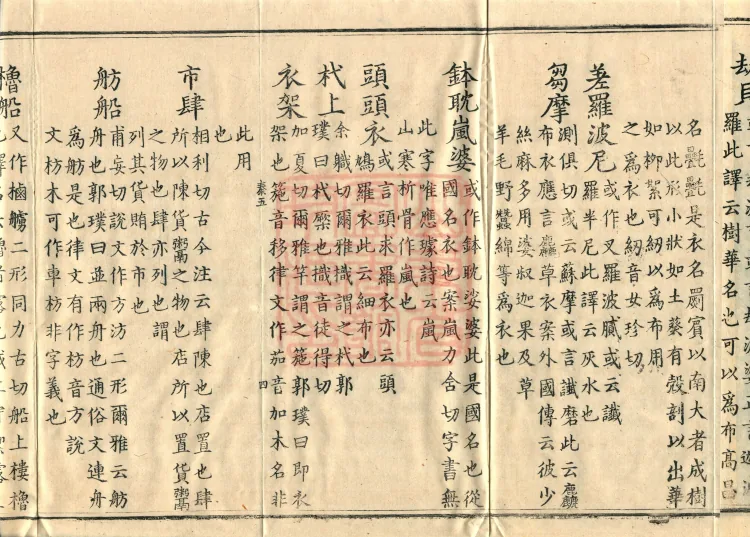 劫貝
羅此譯云樹華名也可以為布高昌
名㲲㲲是衣名罽賓以南大者成樹
以此形小狀如土葵有殼剖以出華
如柳絮可紉以為布用
之為衣也紉音女珍切
差羅波尼或作叉羅波膩或云讖
羅半尼此譯云灰水也
芻摩測俱切或云蘇摩或言讖磨此云麤
布衣應言麤草衣案外國傳云彼少
絲麻多用婆叔迦果及草
羊毛野蠶綿等為衣也
鉢耽嵐婆或作鉢耽娑婆此是國名也從
國名衣也案嵐力含切字書無
此字唯應璩詩云嵐
山寒折骨作嵐也
頭頭衣或言頭求羅衣亦云頭
鳩羅衣此云細布也
杙上余軄切爾雅樴謂之杙郭
璞曰杙橜也樴音徒得切
衣架加夏切爾雅竿謂之箷郭璞曰即衣
架也箷音移律文作茄音加木名非
四
此用
也
市肆相利切古今注云肆陳也店置也肆
所以陳貨鬻之物也店所以置貨鬻
之物也肆亦列也謂
列其貨賄於市也
舫船甫妄切說文作方汸二形爾雅云舫
舟也郭璞曰並兩舟也通俗文連舟
為舫是也律文有作枋音方說
文枋木可作車枋非字義也
櫓船又作樐艣二形同力古切船上樓櫓